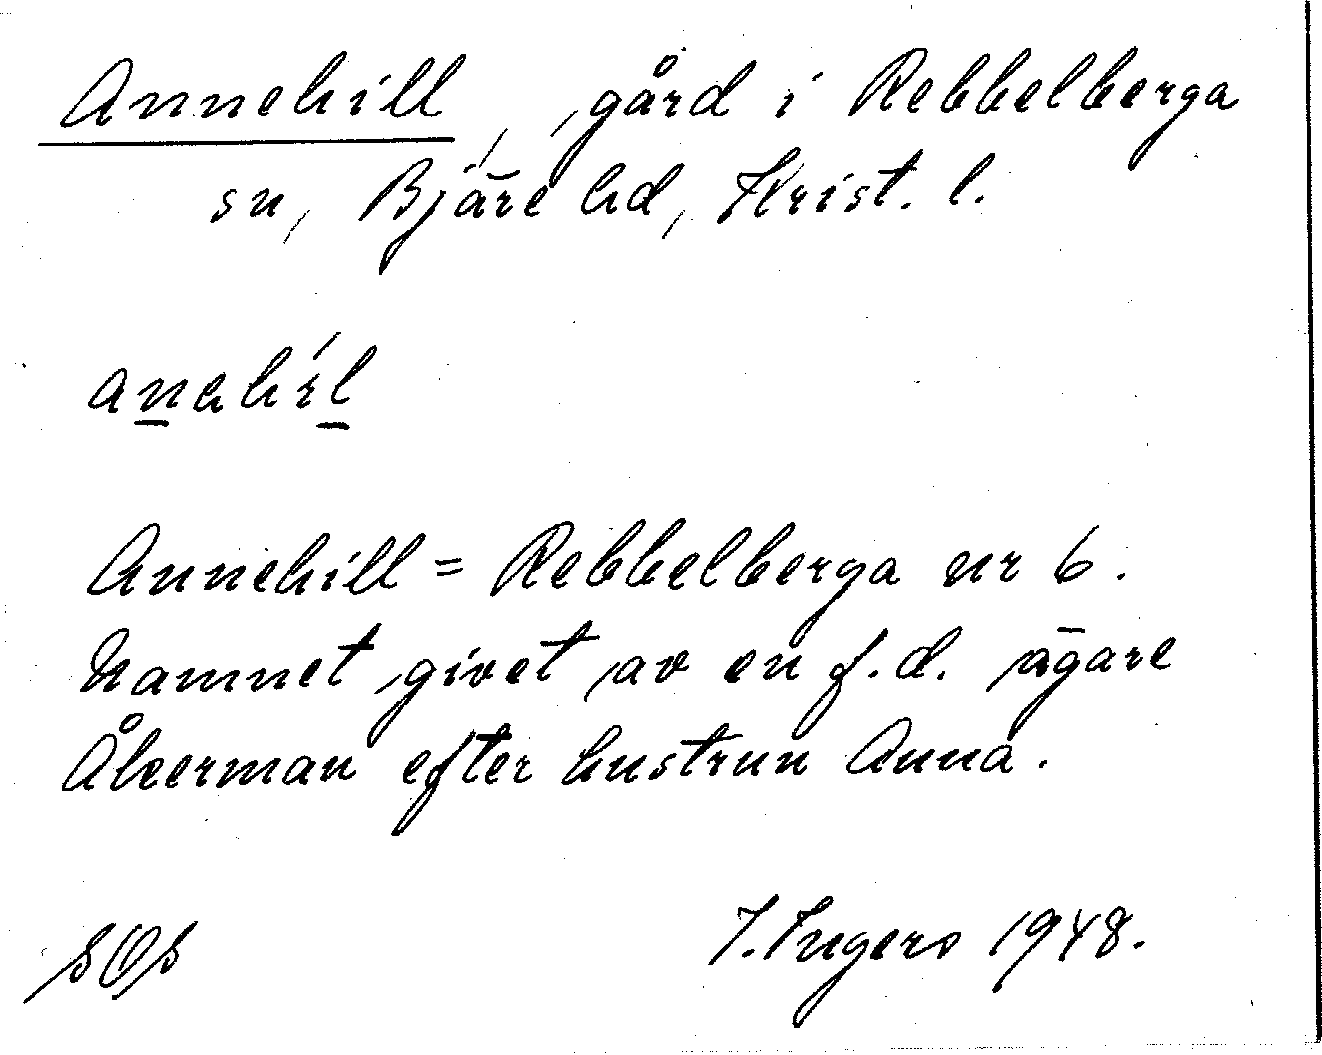 Annehill, gård i Rebbelberga
sn, Bjäre hd, Krist. l.
Annehill = Rebbelberga nr 6.
Namnet givet av en f.d. ägare
Åkerman efter hustrun Anna.
SOS
I. Ingers 1948.